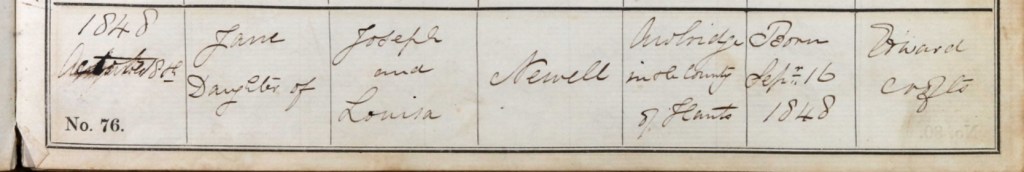 1848
18th
No. 76.
Jane
Daughter of
Joseph
and
Louisa
Newell
in the County
of Hants
Born
Sepr. 16
1848
Edward
Crofts